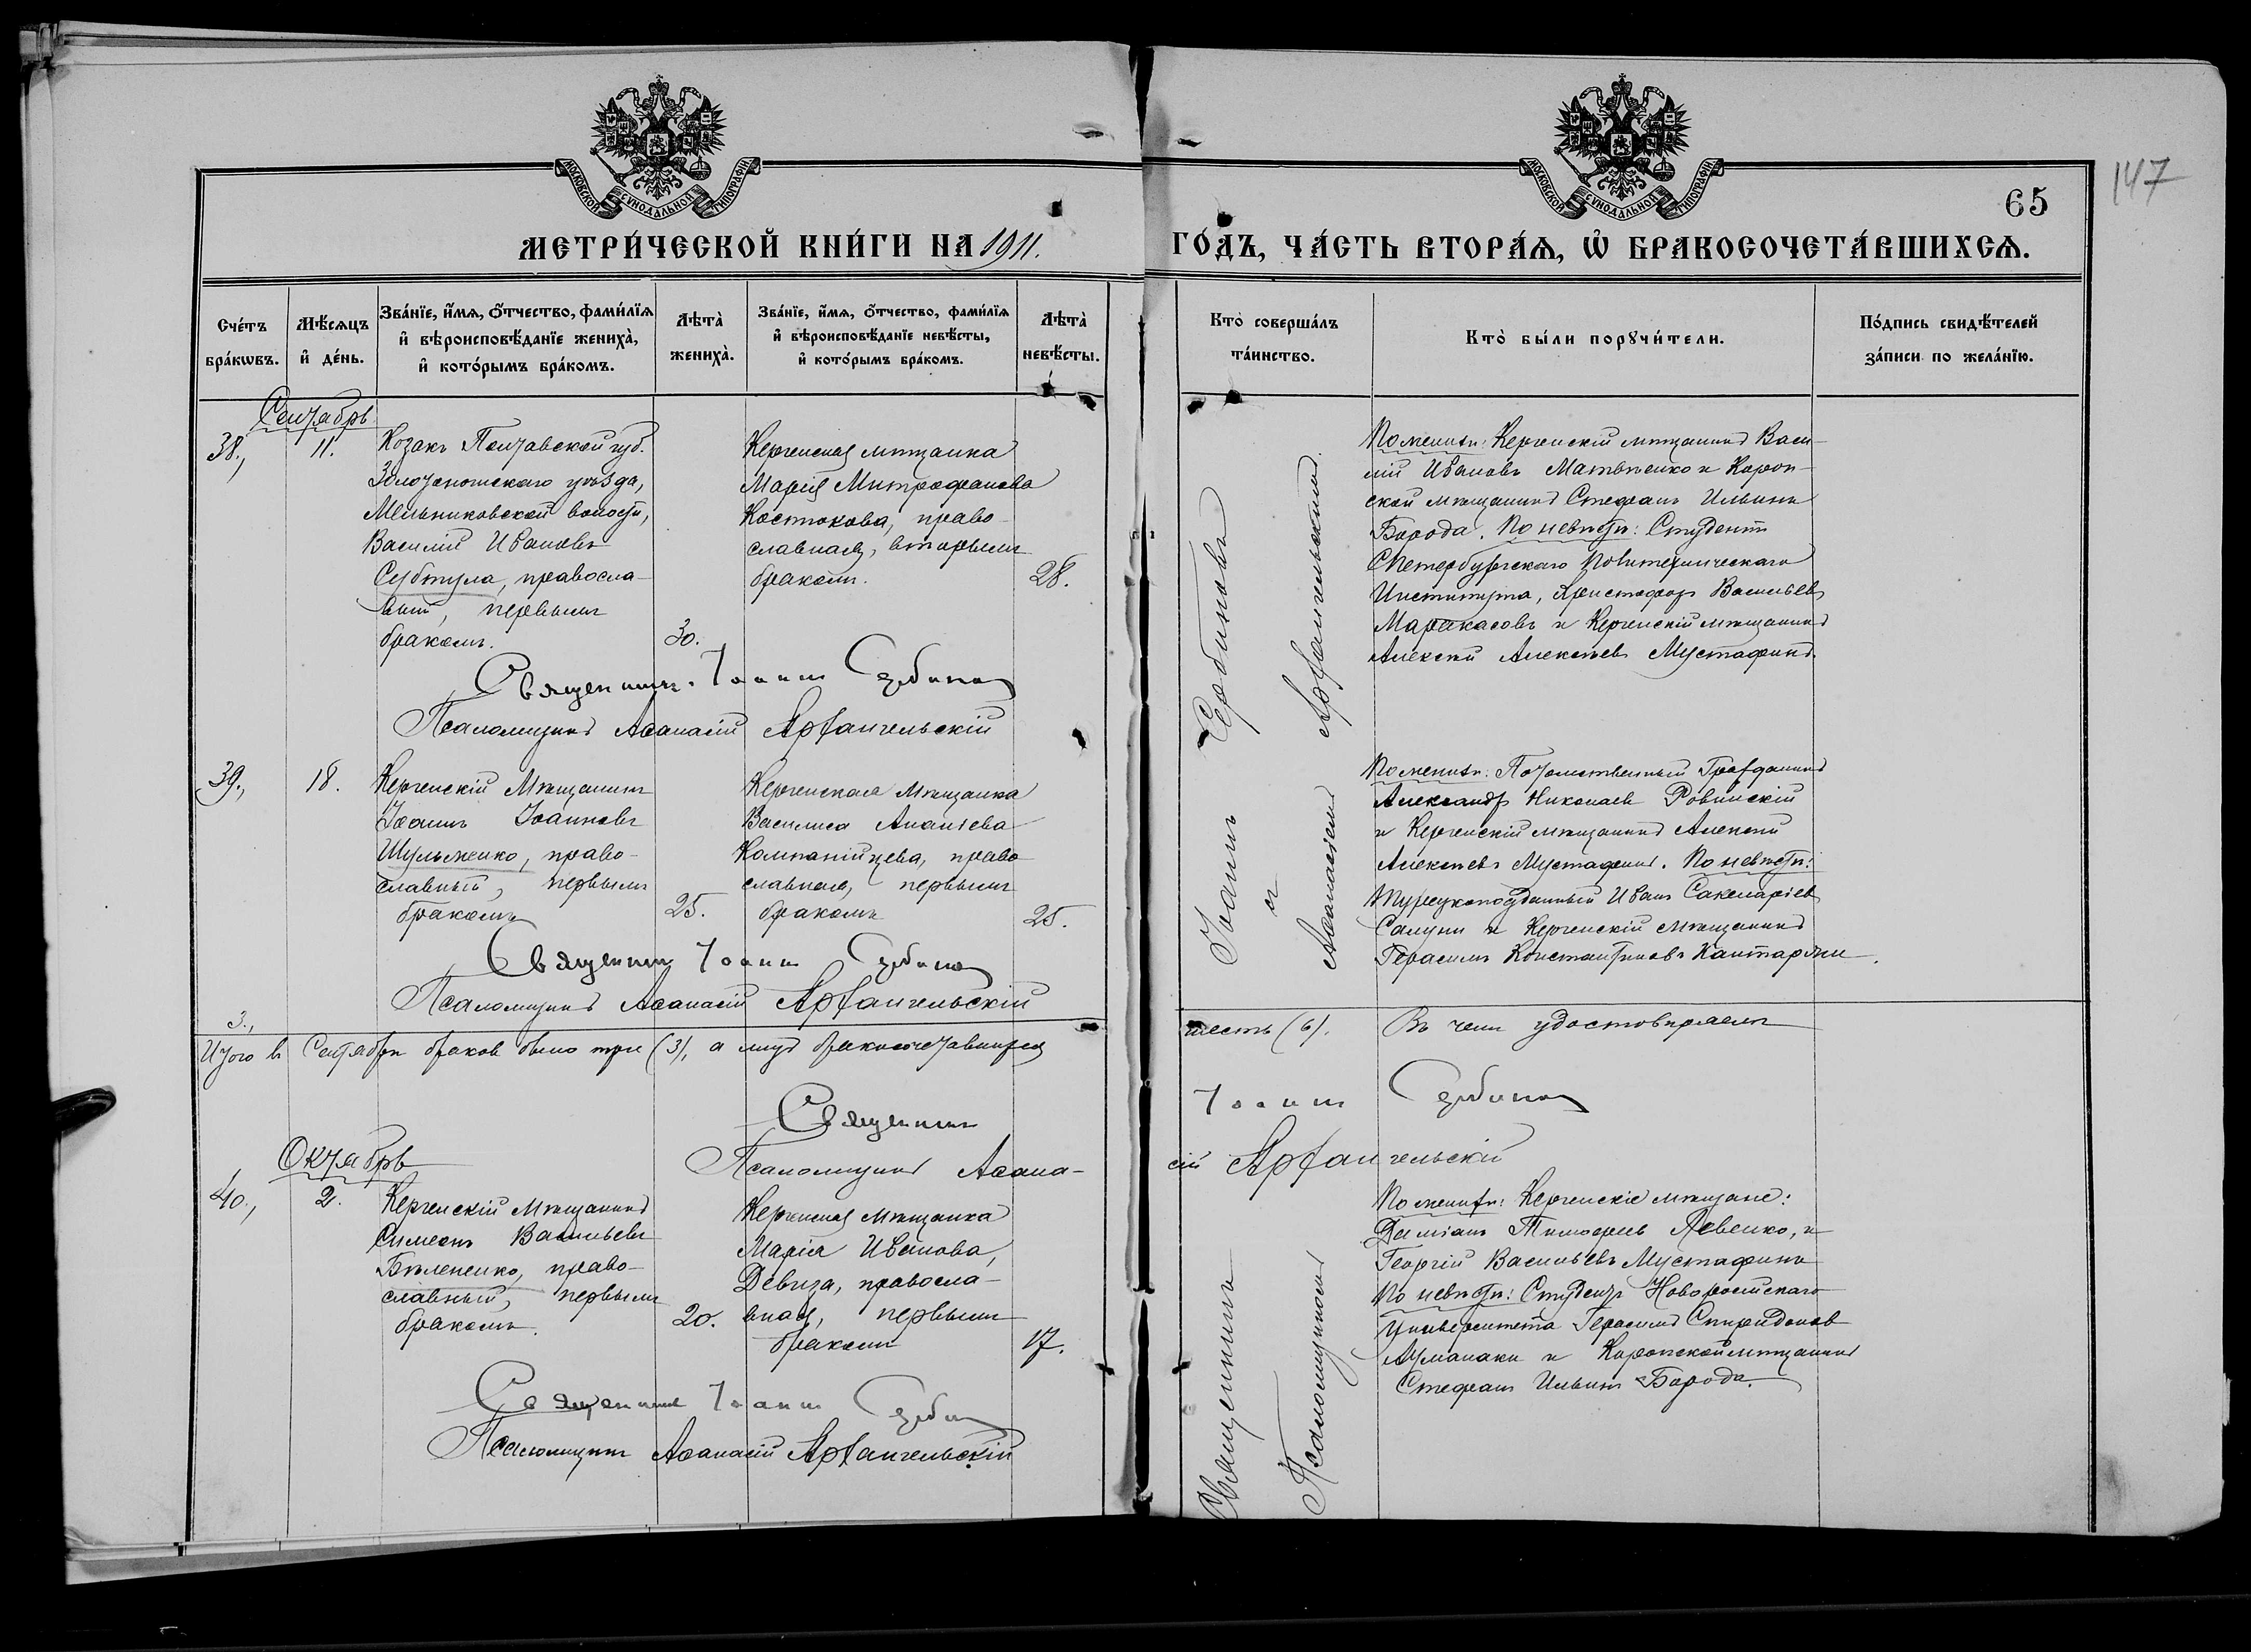 МОСКОВСКОЙ СѴНОДАЛЬНОЙ ТИПОГРАФІИ
МОСКОВСКОЙ СѴНОДАЛЬНОЙ ТИПОГРАФІИ
147
65
МЕТРИ́ЧЕСКОЙ КНИ́ГИ НА 1911.
ГО́ДЪ, ЧА́СТЬ ВТОРА́Ѧ, Ѡ҆ БРАКОСОЧЕТА́ВШИХСѦ.
Сче́тъ бра́кѡвъ.
Мѣ́сяцъ и҆ де́нь.
Зва́нїе, и҆́мѧ, ѻ҆́тчество, фами́лїѧ
и҆ вѣроисповѣ́данїе жениха̀,
и҆ кото́рымъ бра́комъ.
Лѣта̀ жениха̀.
Зва́нїе, и҆́мѧ, ѻ҆́тчество, фами́лїѧ
и҆ вѣроисповѣ́данїе невѣ́сты,
и҆ кото́рымъ бра́комъ.
Лѣта̀ невѣ́сты.
Кто̀ соверша́лъ та́инство.
Кто̀ бы́ли порꙋчи́тели.
По́дпись свидѣ́телей за́писи по жела́нїю.
Сентябрь
38.,
11.
Козакъ Полтавской губ.
Золотоношскаго уѣзда,
Мельниковской волости,
Василій Ивановъ
Субтула, правосла-
вный, первымъ
бракомъ.
30.
Керченская мѣщанка
Марія Митрофанова
Костюкова, право-
славная, вторымъ
бракомъ.
28.
По женихѣ: Керченскій мѣщанинъ Васи-
лій Ивановъ Матвѣенко и Короп-
ской мѣщанинъ Стефанъ Ильинъ
Борода. По невѣстѣ: Студентъ
СПетербургскаго Политехническаго
Института, Христофоръ Васильевъ
Маракасовъ и Керченскій мѣщанинъ
Алексѣй Алексѣевъ Мустафинъ.
Священникъ Іоаннъ Сербиновъ
Псаломщикъ Аѳанасій Архангельскій
39.,
18.
Керченскій Мѣщанинъ
Іоаннъ Іоанновъ
Шульженко, право-
славный, первымъ
бракомъ
25.
Керченская Мѣщанка
Василиса Ананіева
Компанійцева, право
славная, первымъ
бракомъ
25.
По женихѣ: Потомственный Гражданинъ
Александръ Николаевъ Ровинскій
и Керченскій мѣщанинъ Алексѣй
Алексѣевъ Мустафинъ. По невѣстѣ:
Турецкоподданный Иванъ Сакеларіевъ
Салуни и Керченскій мѣщанинъ
Герасимъ Константиновъ Кантаржи.
Священникъ Іоаннъ Сербиновъ
Псаломщикъ Аѳанасій Архангельскій
3.,
Итого въ Сентябрѣ браковъ было три (3), а лицъ бракосочетавшихся
шесть (6). Въ чемъ удостовѣряемъ
Священникъ
Іоаннъ Сербиновъ
Псаломщикъ Аѳана-
сій Архангельскій
Октябрь
40.,
2.
Керченскій Мѣщанинъ
Симеонъ Васильевъ
Бѣлененко, право-
славный, первымъ
бракомъ.
20.
Керченская мѣщанка
Марія Иванова,
Девиза, правосла-
вная, первымъ
бракомъ
17.
По женихѣ: Керченскіе мѣщане:
Даміанъ Тимоѳеевъ Левенко, и
Георгій Васильевъ Мустафинъ
По невѣстѣ: Студентъ Новороссійскаго
Университета Герасимъ Спиридоновъ
и Коропской мѣщанинъ
Стефанъ Ильинъ Борода.
Священникъ Іоаннъ Сербиновъ
Псаломщикъ Аѳанасій Архангельскій
Священникъ Іоаннъ Сербиновъ
съ
Псаломщикомъ Аѳанасіемъ Архангельскимъ.